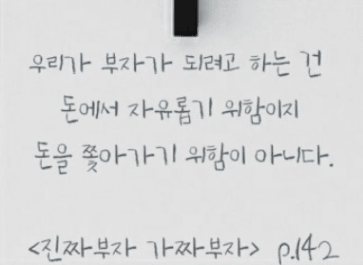 우리가 부자가 되려고 하는 건
돈에서 자유롭기 위함이지
돈을 쫓아가기 위함이 아니다.
<진짜부자 가짜부자> p.142